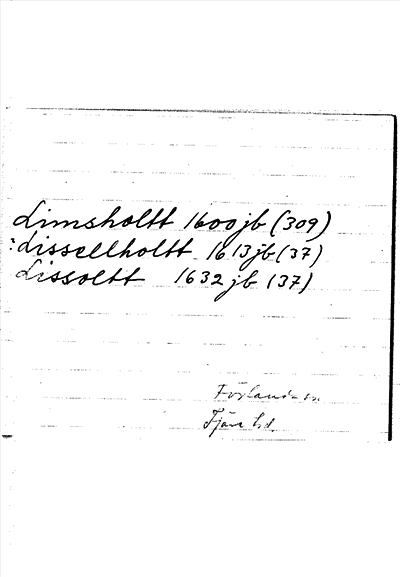 Limsholtt 1600 jb (309)
:Lissellholtt 1613 jb (37)
Lissoltt 1632 jb (37)
Förlanda sn
Fjäre hd.